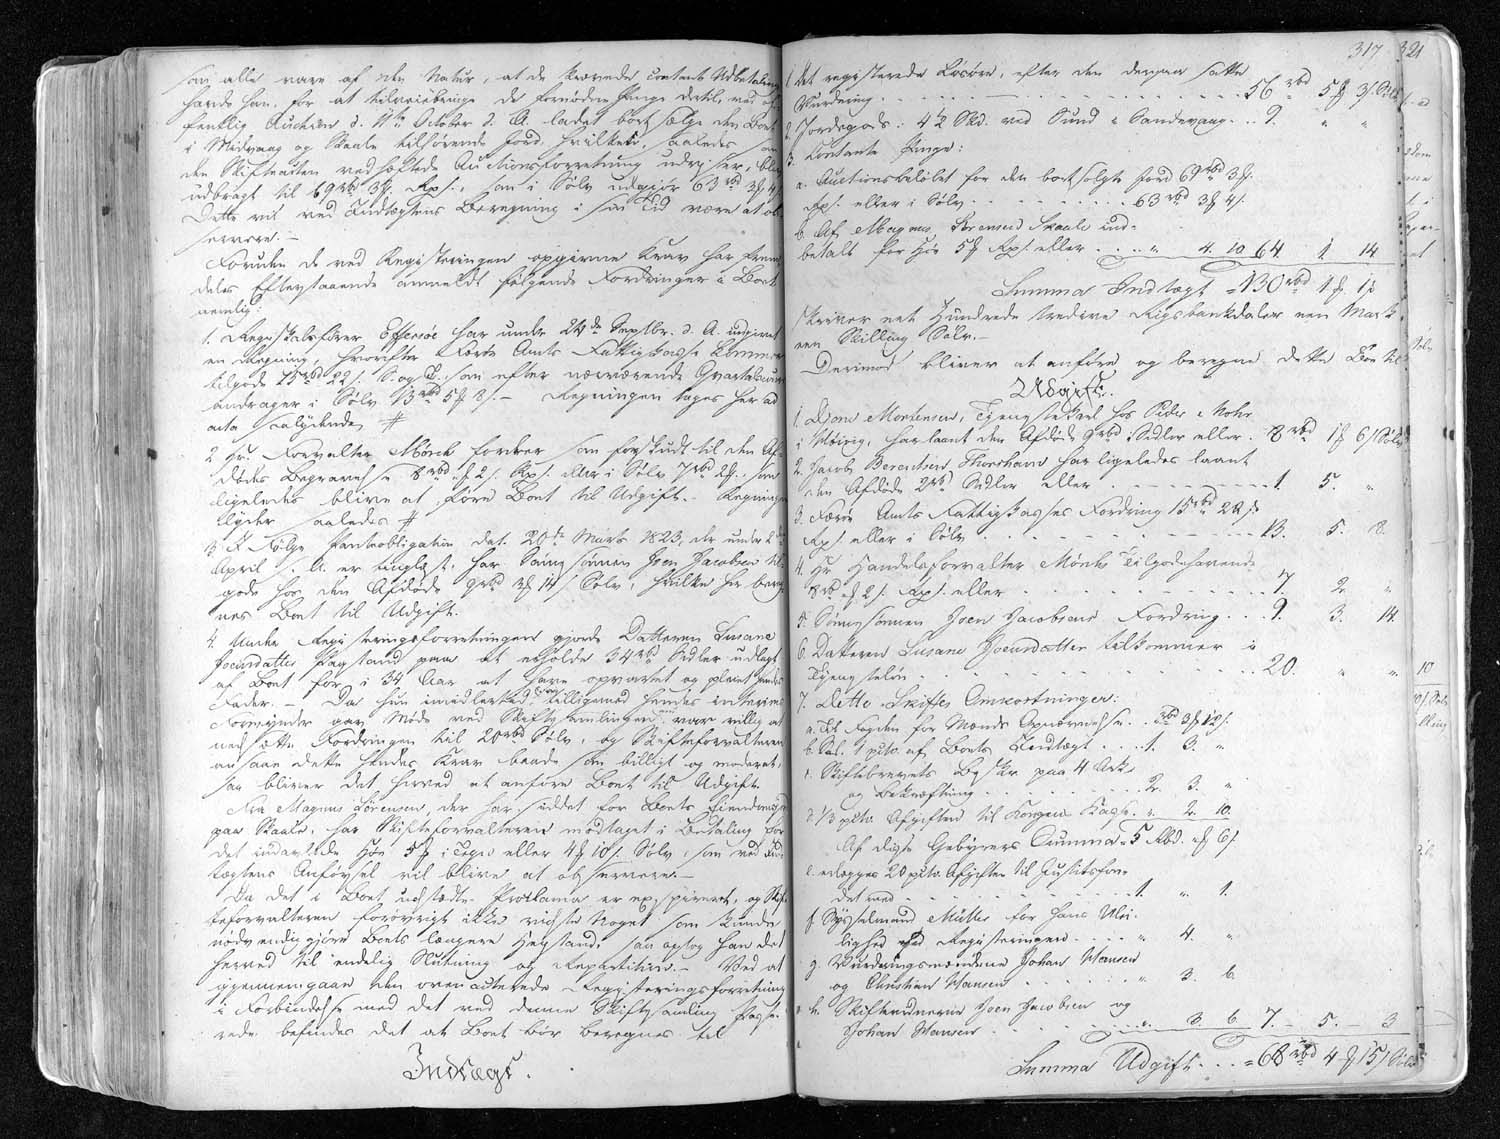 som alle vare af den Natur, at de krævede contante Udbetaling
havde han, for at tilveiebringe de fornødne Penge dertil, ved of-
fentlig Auction d. 11te October d. A. ladet bortsælge den Boet
i Midvaag og Skaale tilhørende Jord, hvilket, saaledes som
den Skifteacten vedhæftede Auctionsforretning udviser, blev
udbragt til 69 rbd 3 ß Rp/., som i Sølv udgiør 63 rbd 3 ß 4/.
Dette vil ved Indtægtens Beregning i sin Tid være at ob-
servere. –
Foruden de ved Registeringen opgivne Krav har frem-
deles Efterstaaende anmeldt følgende Fordringer i Boet
nemlig:
1. Regnskabsfører Effersøe har under 24de Septbr. d. A. indgivet
en Regning, hvorefter Færøe Amts Fattigkasse kommer
tilgode 15 rbd 22/. S. og T. som efter nærværende Qvartalscours
andrager i Sølv 13 rbd 5 ß 8/. – Regningen tages her ad
acta saalydende #
2. Hr. Forvalter Mørck fordrer som forskudt til den Af-
dødes Begravelse 8 rbd ß 2/. Rp/. eller i Sølv 7 rbd 2 ß, som
ligeledes blive at føre Boet til Udgift. Regningen
lyder saaledes #
3. I Følge Panteobligation dat. 20de Marts 1823, der under 2den
April s. A. er tinglæst, har Sønnesønnen Joen Jacobsen til-
gode hos den Afdøde 9 rbd 3 ß 14/ Sølv, hvilke her bereg-
nes Boet til Udgift.
4. Under Registeringsforretningen giorde Datteren Susane
Joensdatter Paastand paa at erholde 34 rbd Sedler udlagt
af Boet for i 34 Aar at have opvartet og pleiet hendes
Fader. – Da hun imidlertid tilligemed hendes interims
Formynder gav Møde ved Skiftesamlingen var villig at
nedsætte Fordringen til 20 rbd Sølv, og Skifteforvalteren
ansaae dette hendes Krav baade som billigt og moderat,
saa bliver det herved at anføre Boet til Udgift.
Fra Magnus Sørensen, der har siddet for Boets Eiendomme
paa Skaale, har Skifteforvalteren modtaget i Betaling for
det indavlede Høe 5 ß i Tegn eller 4 ß 10/. Sølv, som ved Ind-
tægtens Anførsel vil blive at observere. –
Da det i Boet udstedte Proclama er expireret, og Skif-
teforvalteren forøvrigt ikke vidste Noget som kunde
nødvendiggiøre Boets længere Henstand, saa optog han det
herved til endelig Slutning og Repartition. – Ved at
giennemgaae den oven acterede Registeringsforretning
i Forbindelse med det ved denne Skiftesamling passe-
rede befindes det at Boet bør beregnes til
Indtægt.
317 321
1. Det registerede Løsøre, efter den derpaa satte
Vurdering . . . 56 rbd 5 ß 3/. Sølv
2. Jordegods: 4½ Skd. ved Sund i Sandevaag . . 9. " "
3. Contante Penge:
a. Auctionsbeløbet for den bortsolgte Jord 69 rbd 3 ß
Rp/. eller i Sølv . . . 63 rbd 3 ß 4/.
b. Af Magnus Sørensen Skaale ind-
betalt for Høe 5 ß Rp/. eller . . . " 4. 10 64 1 14
Summa Indtægt = 130 rbd 1 ß 1/.
skriver eet Hundrede tredive Rigsbankdaler een Mark
een Skilling Sølv. –
Derimod bliver at anføre og beregne dette Boe til
Udgift.
1. Mortensen, Tjenestekarl hos Peder Mohr
i , har laant den Afdøde 9 rbd Sedler eller . 8 rbd 1 ß 6/ Sølv
2. Jacob Berentsen Thorshavn har ligeledes laant
den Afdøde 2 rbd Sedler eller . . . 1. 5. "
3. Færøe Amts Fattigkasses Fordring 15 rbd 22/.
Rp/. eller i Sølv . . . 13. 5. 8.
4. Hr. Handelsforvalter Mørks Tilgodehavende
8 rbd ß 2/. Rp/. eller . . . 7. 2. "
5. Sønnesønnen Joen Jacobsens Fordring . . . 9. 3. 14.
6. Datteren Susane Joensdatter tilkommer i
Tjenesteløn . . . 20. " "
7. Dette Skiftes Omkostninger:
a. Til Fogden for Mands Ernærelse . . " rbd 3 ß 12/.
b. Sal. 1 pCto. af Boets Indtægt . . . 1. 3. "
c. Skiftebrevets Beskr. paa 4 Ark
og Bekræftning . . . 2. 3. "
d. 1/3 pCto. Afgiften til Kongens Kasse . " 2. 10.
Af disse Gebyrers Summa 5 Rbd. ß 6/.
e. erlægges 20 pCto. Afgiften til Justitsfon-
det med . . . 1. " 1.
f. Sysselmand Müller for hans Uli-
lighed ved Registeringen . . . " 4. "
g. Vurderingsmændene Johan Hansen
og Christian Hansen . . . " 3. 6.
h. Skiftevidnerne Joen Jacobsen og
Johan Hansen . . . " 3. 6. 7. – 5. – 3
Summa Udgift . . . = 68 rbd 4 ß 15/ Sølv